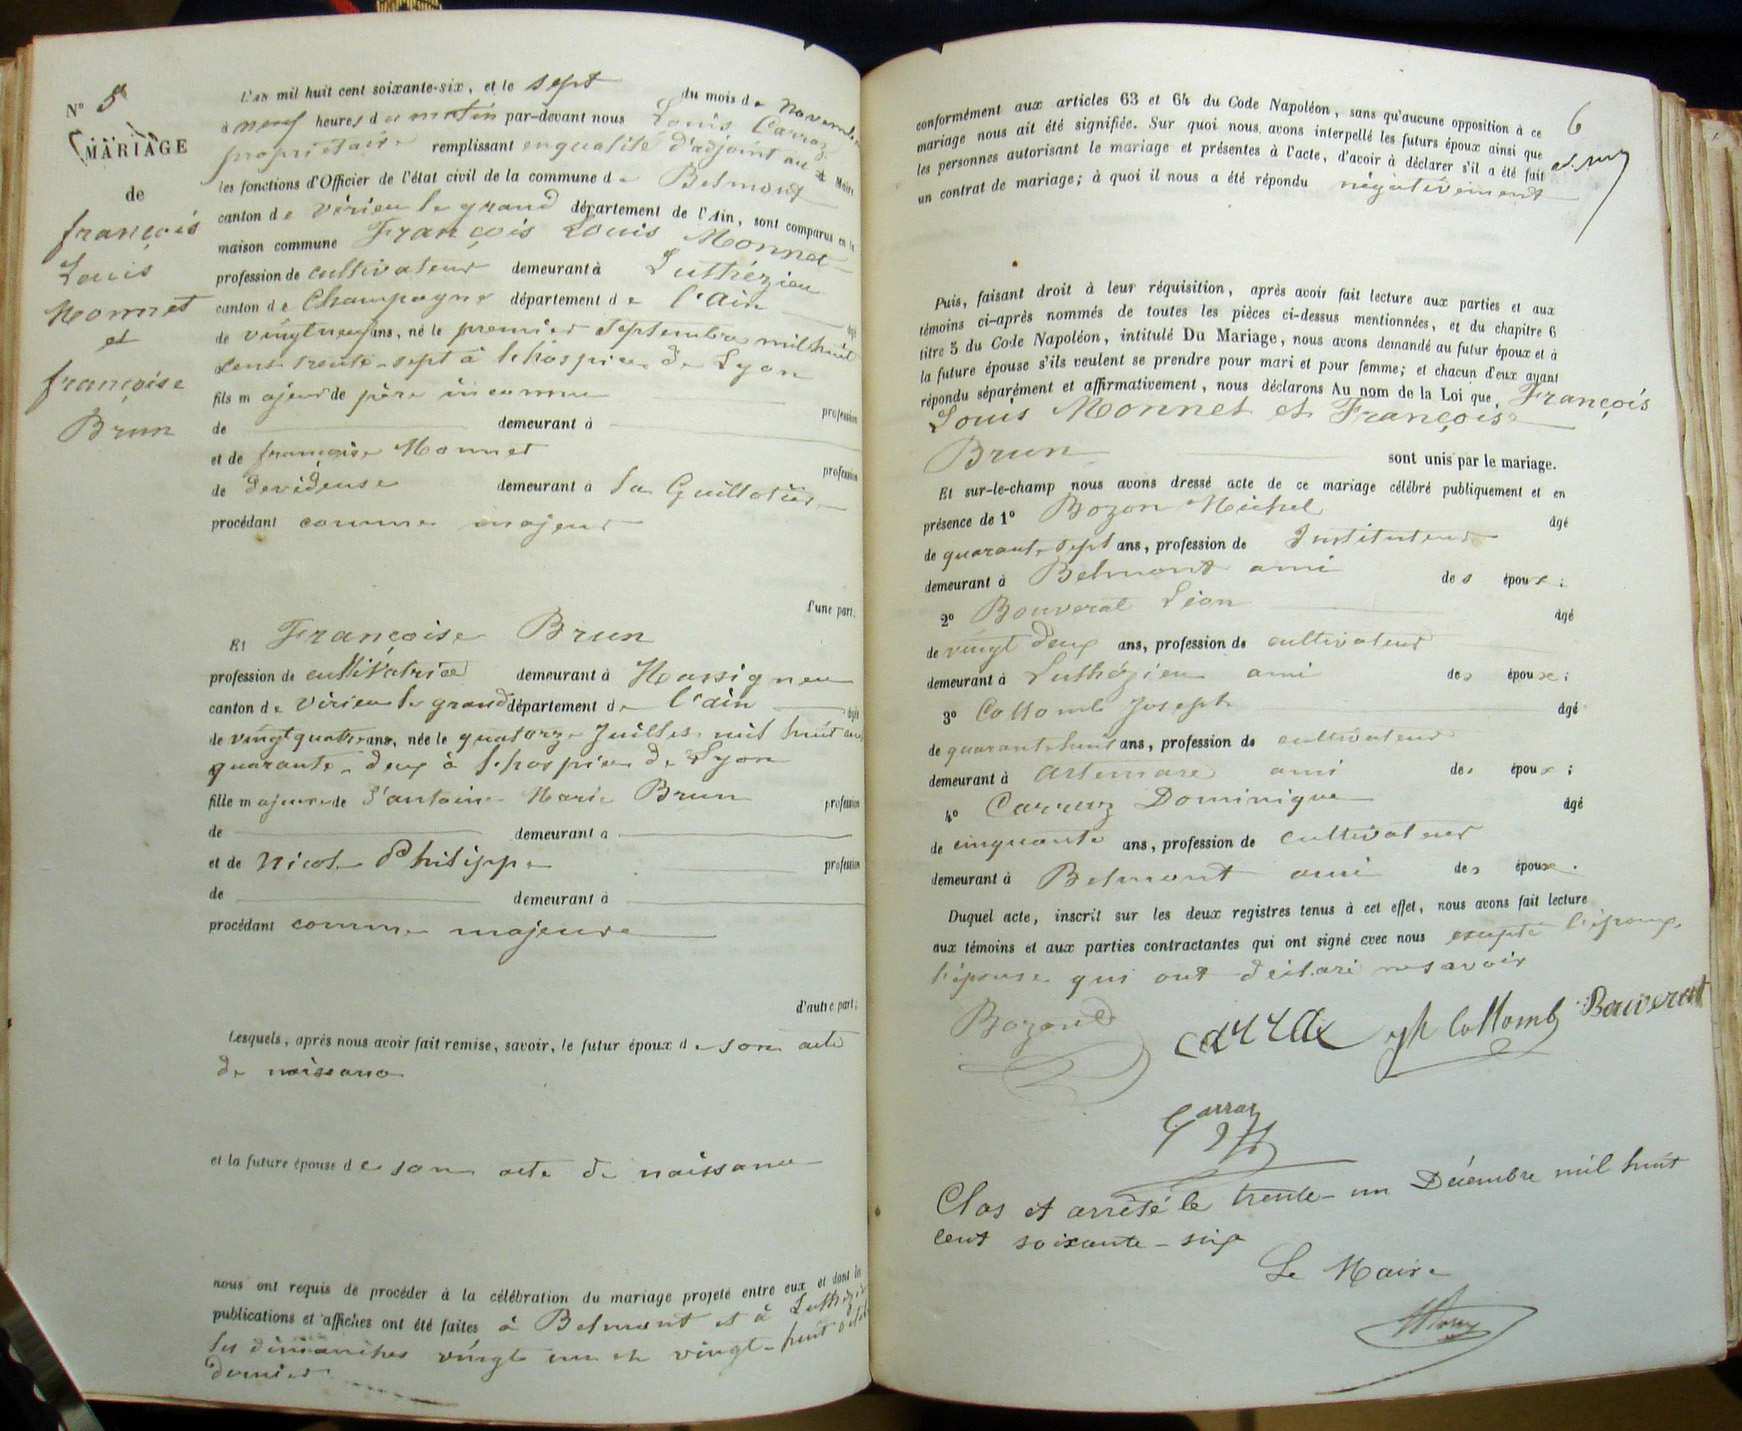 N° 5
MARIAGE
de
françois
Louis
Monnet
et
françoise
Brun
L'an mil huit cent soixante-six, et le sept du mois de Novembre
à neuf heures du matin par-devant nous Louis Carraz
propriétaire remplissant en qualité d'adjoint au Maire
les fonctions d'Officier de l'état civil de la commune de Belmont
canton de virieu le grand département de l'Ain, sont comparus en la
maison commune François Louis Monnet
profession de cultivateur demeurant à Luthézieu
canton de Champagne département de l'Ain âgé
de vingt neuf ans, né le premier septembre mil huit
cent trente-sept à l'hospice de Lyon
fils majeur de père inconnu profession
de demeurant à
et de françoise Monnet profession
de devideuse demeurant à la Guillotière
procédant comme majeur
d'une part.
Et Françoise Brun
profession de cultivatrice demeurant à Massigneu
canton de virieu le grand département de l'ain âgée
de vingt quatre ans, née le quatorze Juillet mil huit cent
quarante-deux à l'hospice de Lyon
fille majeure de d'antoine Marie Brun profession
de demeurant à
et de Nicole Philippe profession
de demeurant à
procédant comme majeure
d'autre part;
Lesquels, après nous avoir fait remise, savoir, le futur époux de son acte
de naissance
et la future épouse de son acte de naissance
nous ont requis de procéder à la célébration du mariage projeté entre eux et dont les
publications et affiches ont été faites à Belmont et à Luthézieu
les dimanches vingt un et vingt-huit octobre
dernier
6
conformément aux articles 63 et 64 du Code Napoléon, sans qu'aucune opposition à ce
mariage nous ait été signifiée. Sur quoi nous avons interpellé les futurs époux ainsi que
les personnes autorisant le mariage et présentes à l'acte, d'avoir à déclarer s'il a été fait
un contrat de mariage; à quoi il nous a été répondu négativement
Puis, faisant droit à leur réquisition, après avoir fait lecture aux parties et aux
témoins ci-après nommés de toutes les pièces ci-dessus mentionnées, et du chapitre 6
titre 5 du Code Napoléon, intitulé Du Mariage, nous avons demandé au futur époux et à
la future épouse s'ils veulent se prendre pour mari et pour femme; et chacun d'eux ayant
répondu séparément et affirmativement, nous déclarons Au nom de la Loi que François
Louis Monnet et Françoise
Brun sont unis par le mariage.
Et sur-le-champ nous avons dressé acte de ce mariage célébré publiquement et en
présence de 1° Bozon Michel âgé
de quarante sept ans, profession de Instituteur
demeurant à Belmont ami des époux;
2° Bouverat Léon âgé
de vingt deux ans, profession de cultivateur
demeurant à Luthézieu ami des époux;
3° Collomb Joseph âgé
de quarante huit ans, profession de cultivateur
demeurant à artemare ami des époux;
4° Carraz Dominique âgé
de cinquante ans, profession de cultivateur
demeurant à Belmont ami des époux.
Duquel acte, inscrit sur les deux registres tenus à cet effet, nous avons fait lecture
aux témoins et aux parties contractantes qui ont signé avec nous excepté l'époux,
l'épouse qui ont déclaré ne savoir
Bozon carraz jh Collomb Bouverat
Carraz
Clos et arrêté le trente-un Décembre mil huit
cent soixante-six
Le Maire